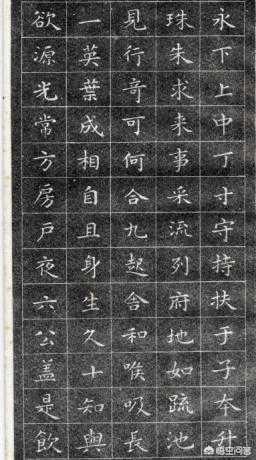 永下上中丁寸守持扶于子本升
珠朱求来事采流列府地如疏池
見行奇可何合九起含和喉吸長
一英葉成相自且身生久十知與
欲源光常方房戶夜六公蓋是飲
悟空问答